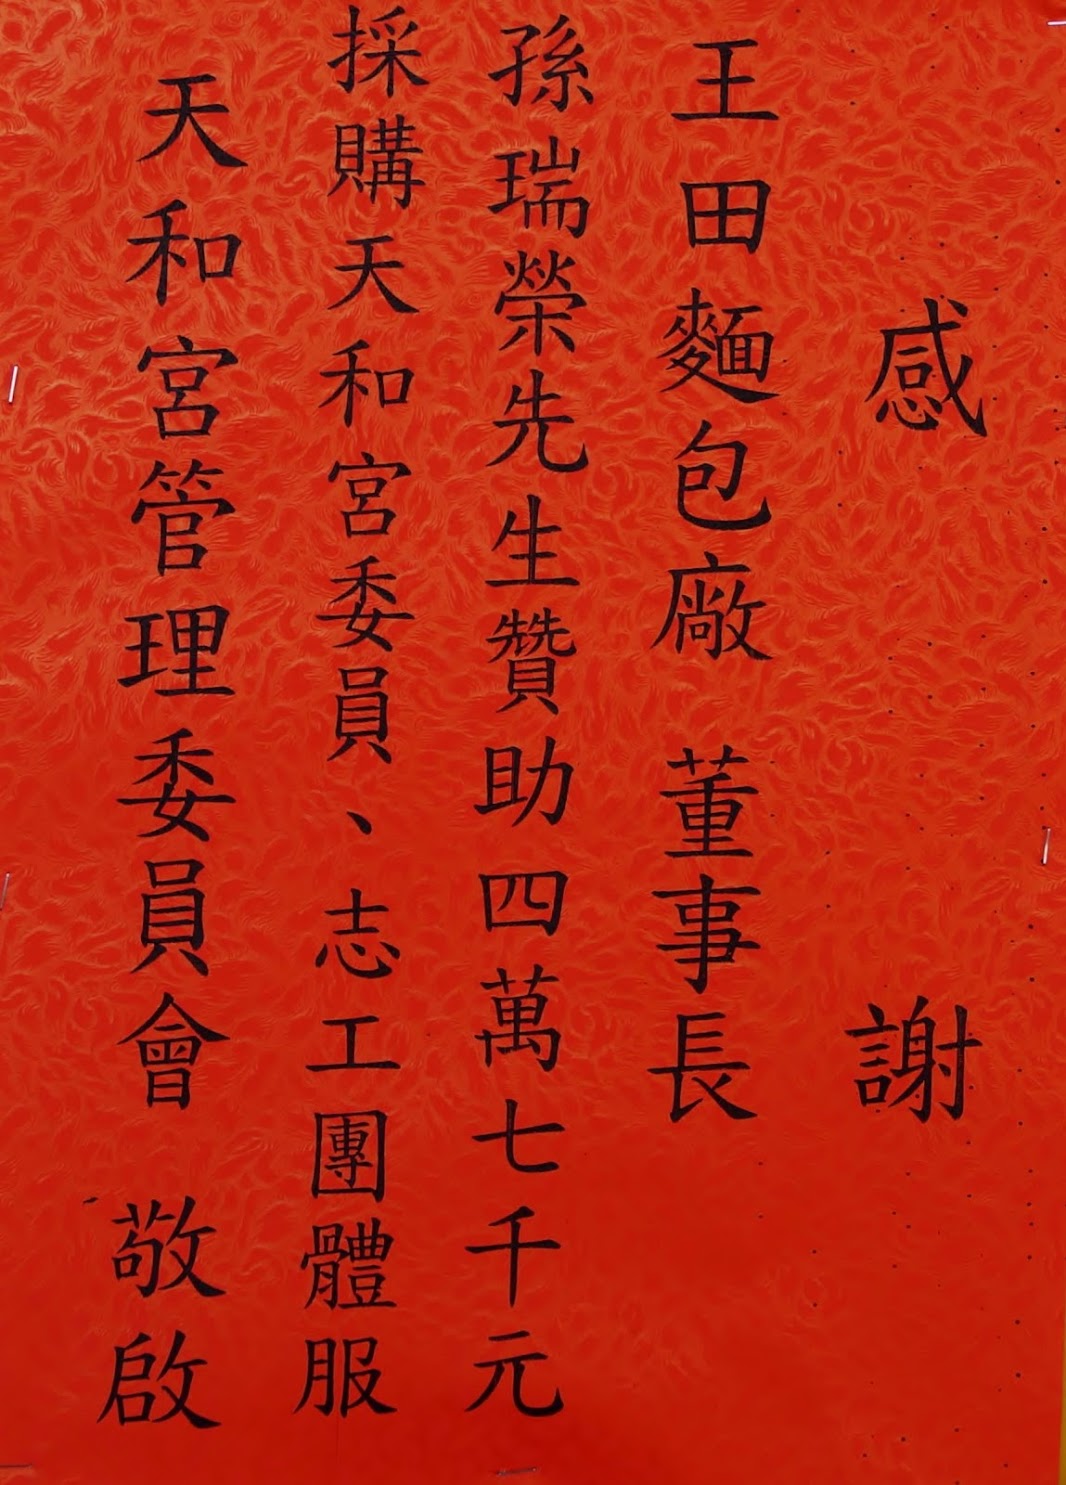 感謝
王田麵包廠 董事長
孫瑞榮先生贊助四萬七千元
採購天和宮委員、志工團體服
天和宮管理委員會 敬啟